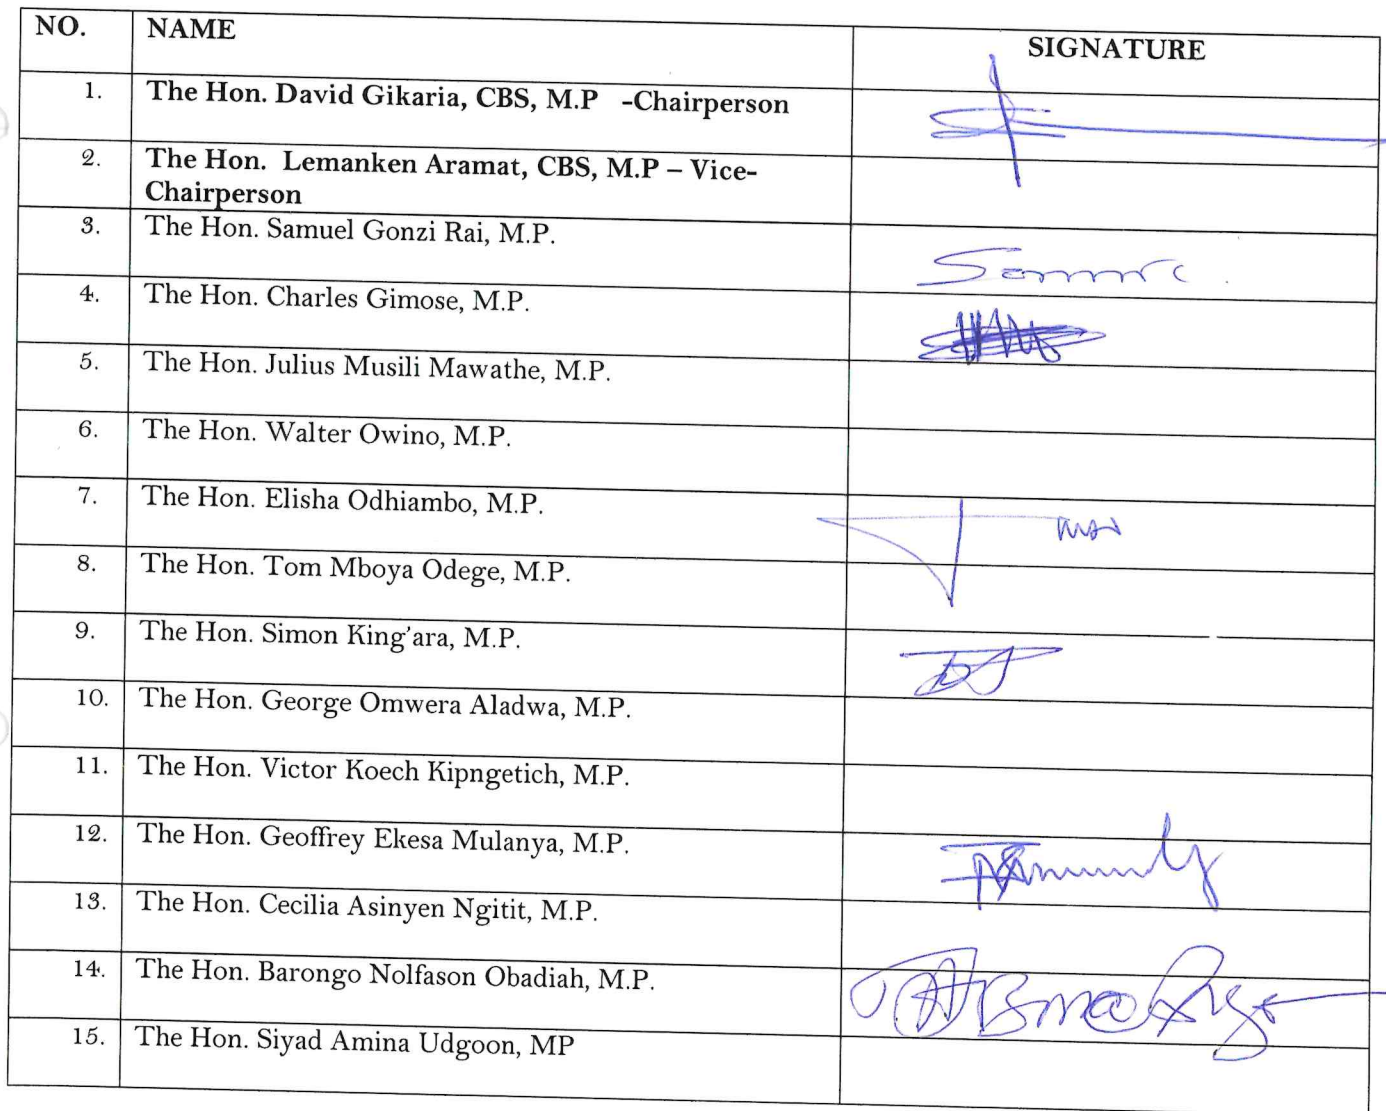 NO. NAME SIGNATURE
1. The Hon. David Gikaria, CBS, M.P -Chairperson
2. The Hon. Lemanken Aramat, CBS, M.P – Vice-
Chairperson
3. The Hon. Samuel Gonzi Rai, M.P.
4. The Hon. Charles Gimose, M.P.
5. The Hon. Julius Musili Mawathe, M.P.
6. The Hon. Walter Owino, M.P.
7. The Hon. Elisha Odhiambo, M.P.
8. The Hon. Tom Mboya Odege, M.P.
9. The Hon. Simon King'ara, M.P.
10. The Hon. George Omwera Aladwa, M.P.
11. The Hon. Victor Koech Kipngetich, M.P.
12. The Hon. Geoffrey Ekesa Mulanya, M.P.
13. The Hon. Cecilia Asinyen Ngitit, M.P.
14. The Hon. Barongo Nolfason Obadiah, M.P.
15. The Hon. Siyad Amina Udgoon, MP